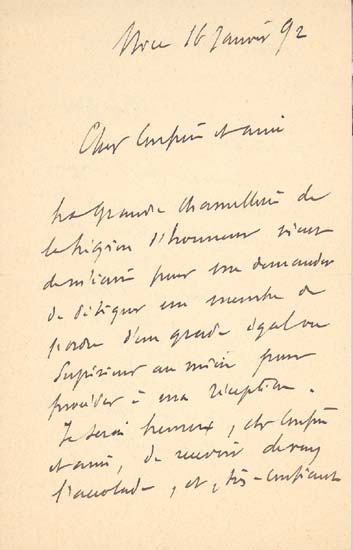 Nice 16 Janvier 92
Cher Confrère et ami
La Grande Chancellerie de
la Légion d'honneur vient
de m'écrire pour me demander
de désigner un membre de
l'ordre d'un grade égal ou
Supérieur au mien pour
procéder à ma réception.
Je serai heureux, cher Confrère
et ami, de recevoir de vous
l'accolade, et, très-confiant